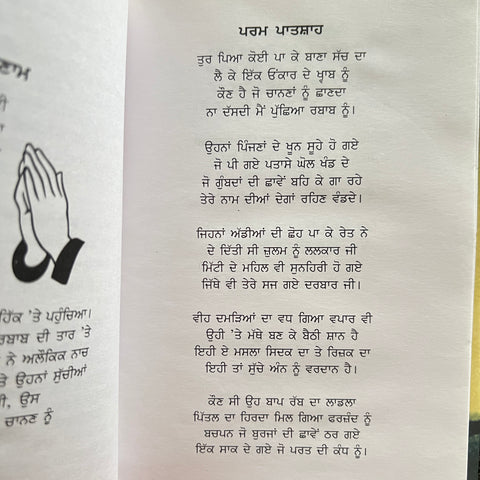 ਣਾਮ
ਹਿੱਕ 'ਤੇ ਪਹੁੰਚਿਆ।
ਰਬਾਬ ਦੀ ਤਾਰ 'ਤੇ
ਨੇ ਅਲੌਕਿਕ ਨਾਚ
ਤੇ ਉਹਨਾਂ ਸੁੱਚੀਆਂ
ਸੀ, ਉਸ
ਚਾਨਣ ਨੂੰ
ਪਰਮ ਪਾਤਸ਼ਾਹ
ਤੁਰ ਪਿਆ ਕੋਈ ਪਾ ਕੇ ਬਾਣਾ ਸੱਚ ਦਾ
ਲੈ ਕੇ ਇੱਕ ਓਂਕਾਰ ਦੇ ਖ਼੍ਵਾਬ ਨੂੰ
ਕੌਣ ਹੈ ਜੋ ਚਾਨਣਾਂ ਨੂੰ ਛਾਣਦਾ
ਨਾ ਦੱਸਦੀ ਮੈਂ ਪੁੱਛਿਆ ਰਬਾਬ ਨੂੰ।
ਉਹਨਾਂ ਪਿੰਜਣਾਂ ਦੇ ਖੂਨ ਸੂਹੇ ਹੋ ਗਏ
ਜੋ ਪੀ ਗਏ ਪਤਾਸੇ ਘੋਲ ਖੰਡ ਦੇ
ਜੋ ਗੁੰਬਦਾਂ ਦੀ ਛਾਵੇਂ ਬਹਿ ਕੇ ਗਾ ਰਹੇ
ਤੇਰੇ ਨਾਮ ਦੀਆਂ ਦੇਗਾਂ ਰਹਿਣ ਵੰਡਦੇ।
ਜਿਹਨਾਂ ਅੱਡੀਆਂ ਦੀ ਛੋਹ ਪਾ ਕੇ ਰੇਤ ਨੇ
ਦੇ ਦਿੱਤੀ ਸੀ ਜ਼ੁਲਮ ਨੂੰ ਲਲਕਾਰ ਜੀ
ਮਿੱਟੀ ਦੇ ਮਹਿਲ ਵੀ ਸੁਨਹਿਰੀ ਹੋ ਗਏ
ਜਿੱਥੇ ਵੀ ਤੇਰੇ ਸਜ ਗਏ ਦਰਬਾਰ ਜੀ।
ਵੀਹ ਦਮੜਿਆਂ ਦਾ ਵਧ ਗਿਆ ਵਪਾਰ ਵੀ
ਉਹੀ 'ਤੇ ਮੱਥੇ ਬਣ ਕੇ ਬੈਠੀ ਸ਼ਾਨ ਹੈ
ਇਹੀ ਏ ਮਸਲਾ ਸਿਦਕ ਦਾ ਤੇ ਰਿਜ਼ਕ ਦਾ
ਇਹੀ ਤਾਂ ਸੁੱਚੇ ਅੰਨ ਨੂੰ ਵਰਦਾਨ ਹੈ।
ਕੌਣ ਸੀ ਉਹ ਬਾਪ ਰੱਬ ਦਾ ਲਾਡਲਾ
ਪਿੱਤਲ ਦਾ ਹਿਰਦਾ ਮਿਲ ਗਿਆ ਫਰਜ਼ੰਦ ਨੂੰ
ਬਚਪਨ ਜੋ ਬੁਰਜਾਂ ਦੀ ਛਾਵੇਂ ਠਰ ਗਏ
ਇੱਕ ਸਾਕ ਦੇ ਗਏ ਜੋ ਪਰਤ ਦੀ ਕੰਧ ਨੂੰ।